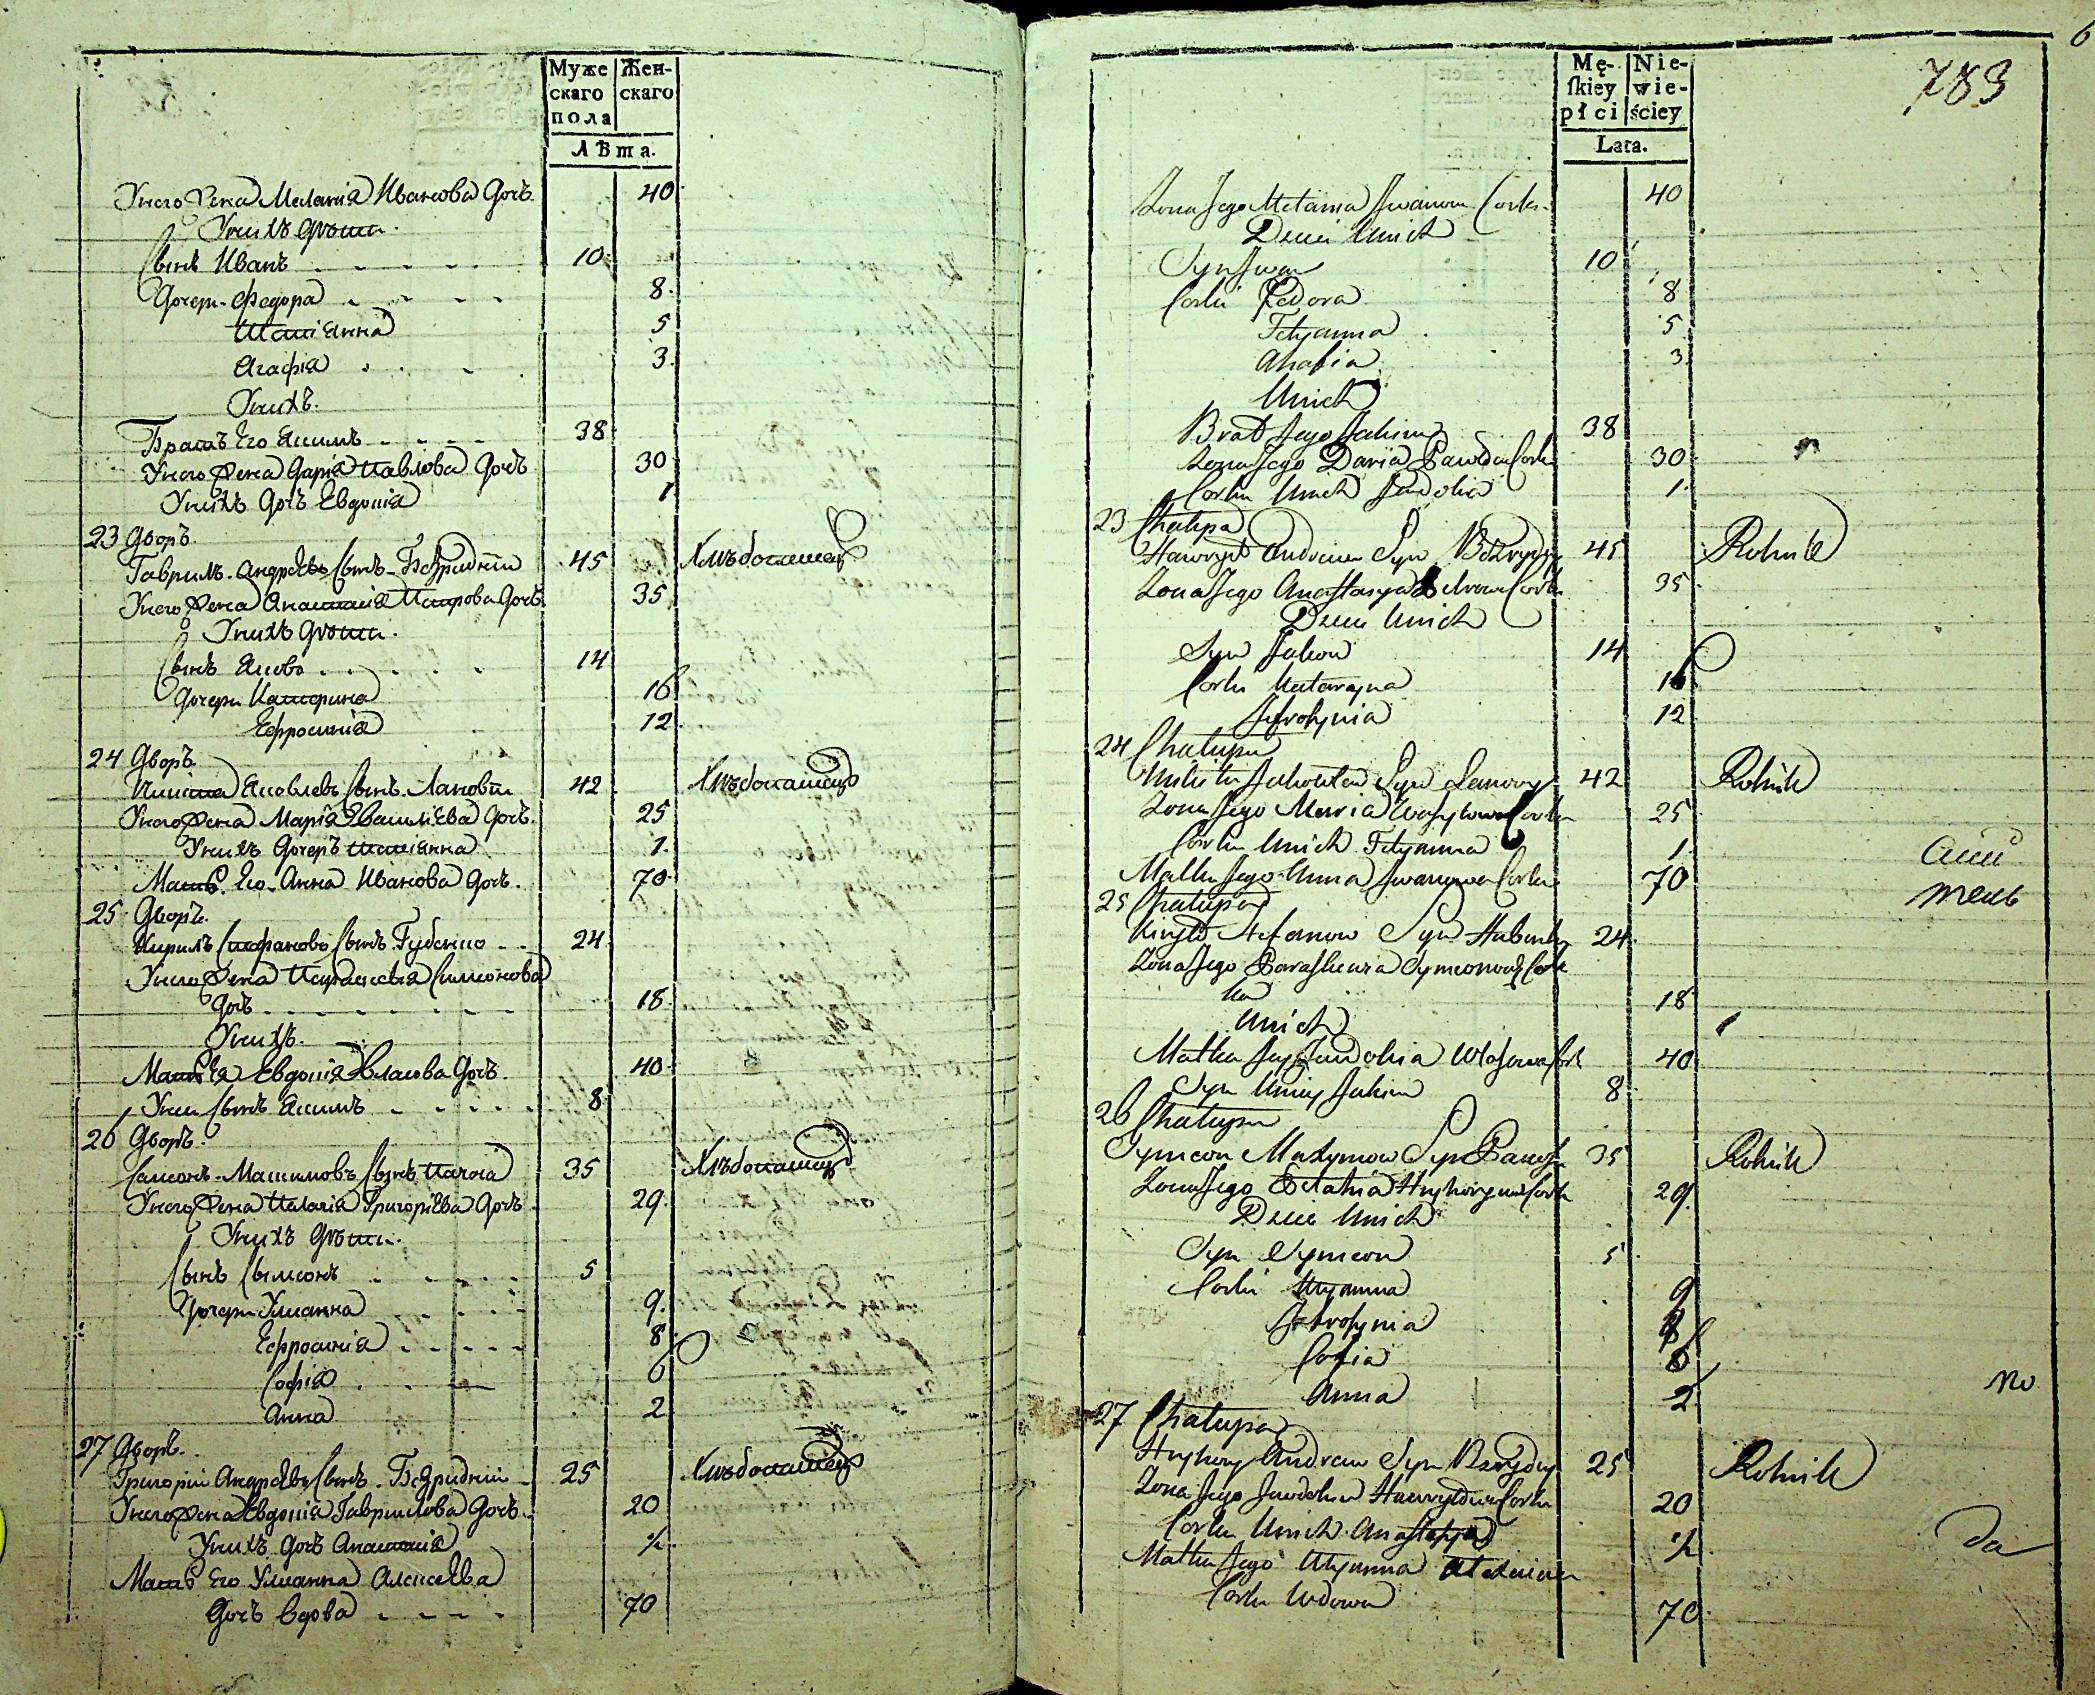 Муже
скаго
пола
Жен-
скаго
Лѣта.
У него Жена Меланія Иванова Дочь. 40
У нихъ Дѣти.
Сынъ Иванъ 10
Дочери Федора 8
Татіанна 5
Агафія 3
У нихъ.
Братъ Его Якимъ 38
У него Жена Дарія Павлова Дочь 30
У нихъ Дочь Евдокія 1
23 Дворъ.
Гаврилъ Андрѣевъ Сынъ Безридній 45 Хлѣбопашецъ
У него Жена Анастасія Петрова Дочь 35
У нихъ Дѣти.
Сынъ Яковъ 14
Дочери Катерина 16
Ефросинія 12
24 Дворъ.
Никита Яковлевъ Сынъ Лановій 42 Хлѣбопашецъ
У него Жена Марія Василіева Дочь. 25
У нихъ Дочерь Татіанна 1
Мать Его Анна Иванова Дочь. 70
25 Дворъ.
Кирилъ Стефановъ Сынъ Губенко 24
У него Жена Параскевія Симонова
Дочь 18
У нихъ.
Мать Ея Евдокія Власова Дочь. 40
У ней Сынъ Якимъ 8
26 Дворъ.
Самсонъ Максимовъ Сынъ 35 Хлѣбопашецъ
У него Жена Палагія Григоріева Дочь. 29
У нихъ Дѣти.
Сынъ Симеонъ 5
Дочери Уліанна 9
Ефросинія 8
Софія 6
Анна 2
27 Дворъ.
Григорій Андрѣевъ Сынъ Безридній 25 Хлѣбопашецъ
У него Жена Евдокія Гаврилова Дочь. 20
У нихъ Дочь Анастасія ½
Мать Его Уліанна Алексѣева
Дочь вдова 70
6
783
Mę-
ſkiey
płci
Nie-
wie-
ściey
Lata.
Zona Jego Melania Jwanowa Corka 40
Dzieci Unich
Syn Jwan 10
Corki Fedora 8
Tetyanna 5
Ahafia 3
Unich
Brat Jego Jakim 38
Zona Jego Daria Pawłowa Corka 30
Corka Unich Jewdokia 1
23 Chałupa
Hawryło Andreiew Syn Bezrydny 45 Rolnik
Zona Jego Anastasya Petrowa Corka 35
Dzieci Unich
Syn Jakow 14
Corki Kataryna 16
Jefrosynia 12
24 Chałupa
Mikita Jakowlew Syn Lanowy 42 Rolnik
Zona Jego Maria Wasylowa Corka 25
Corka Unich Tetyanna 1
Matka Jego Anna Jwanowa Corka 70
25 Chałupa
Kiryło Stefanow Syn Hubenko 24
Zona Jego Paraskewia Symeonowa Cor
ka 18
Unich
Matka Jey Jewdokia Własowa Corka 40
Syn Uniey Jakim 8
26 Chałupa
Symeon Maxymow Syn 35 Rolnik
Zona Jego Pełahia Hryhoryewa Corka 29
Dzieci Unich
Syn Symeon 5
Corki Ulyanna 9
Jefrosynia 8
Sofia 6
Anna 2
по
27 Chałupa
Hryhory Andreiew Syn Bezrydny 25 Rolnik
Zona Jego Jewdokia Hawryłowa Corka 20
Corka Unich Anastasya ½
Matka Jego Ulyanna Alexiewa
Corka Wdowa 70